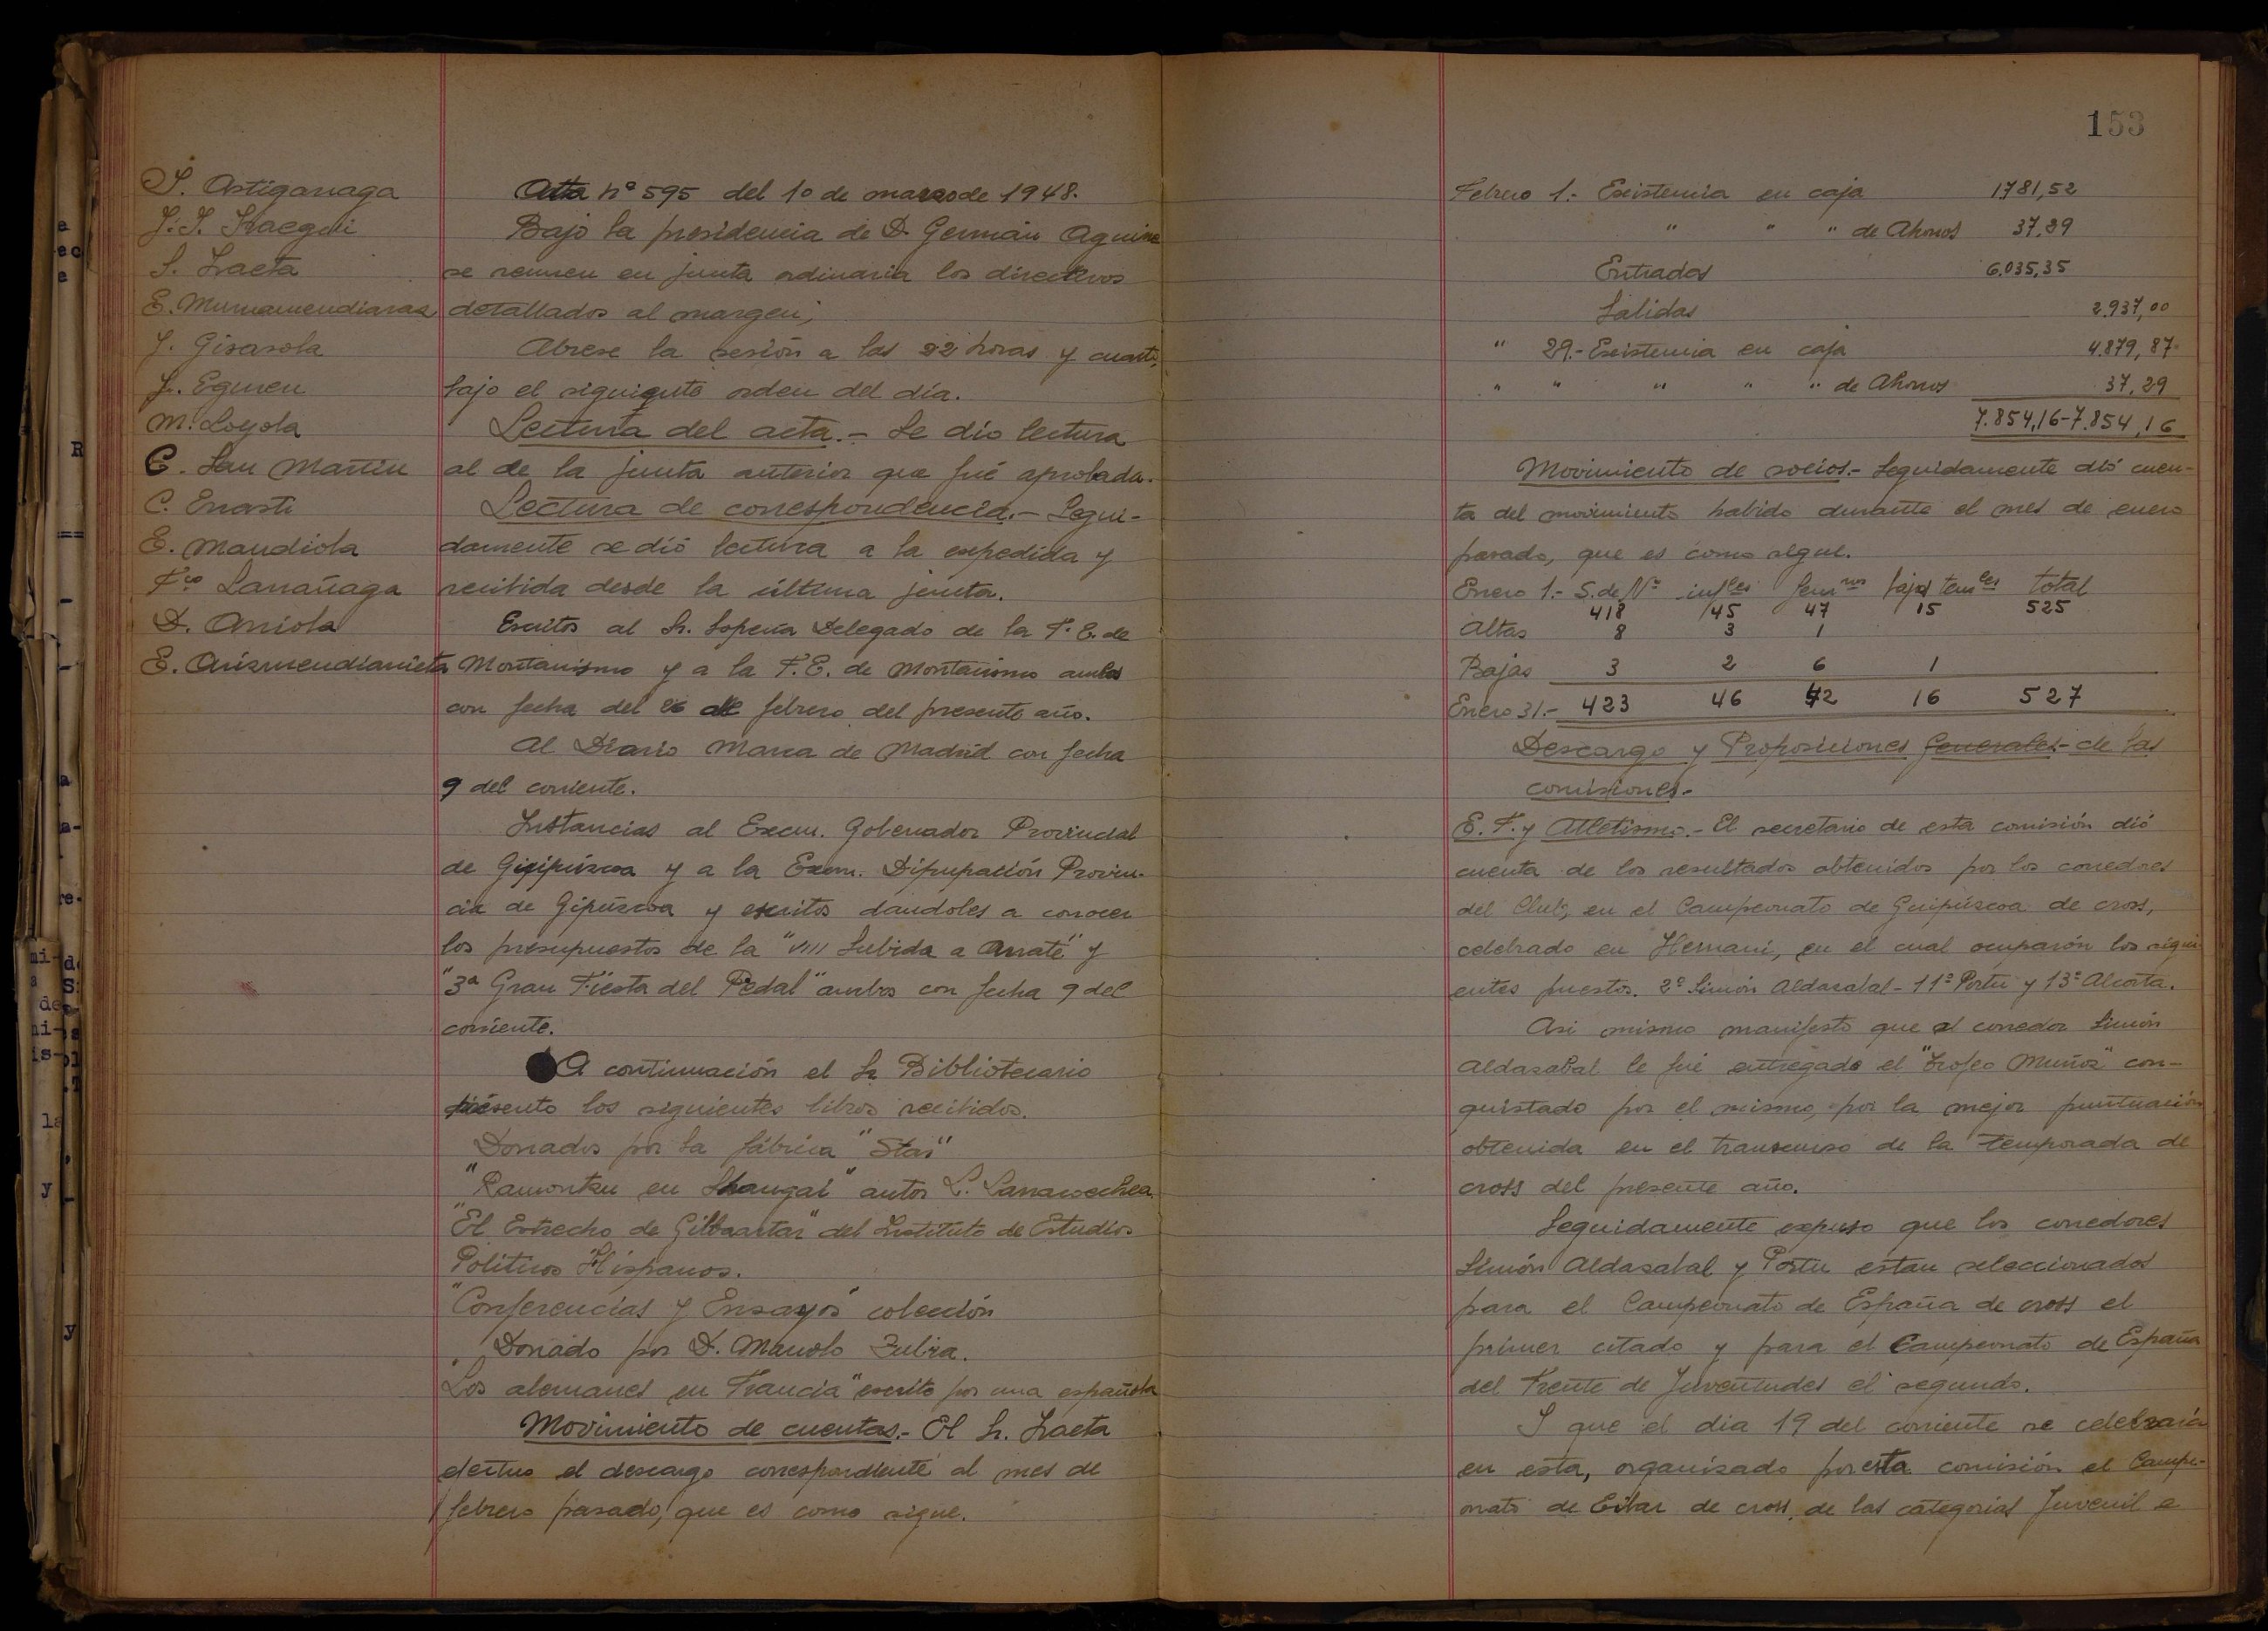 S. Astigarraga
J. J. Iraegui
S. Iraeta
E. Murnamendiaraz
J. Gisasola
J. Eguren
M. Loyola
C. San Martin
C. Errasti
E. Mandiola
Fco Larrañaga
D. Arriola
E. Arizmendiarrieta
Acta nº 595 del 10 de marzo de 1948.
Bajo la presidencia de D. Germán Aguirre
se reunen en junta ordinaria los directivos
detallados al margen;
Abrese la sesión a las 22 horas y cuarto,
bajo el siguiente orden del día.
Lectura del acta.- Se dio lectura
al de la junta anterior que fué aprobada.
Lectura de correspondencia.- Segui-
damente se dió lectura a la expedida y
recibida desde la última junta.
Escritos al Sr. Sopeña Delegado de la F. E. de
Montanismo y a la F. E. de Montañismo ambos
con fecha del 26 de febrero del presente año.
Al Diario Marca de Madrid con fecha
9 del corriente.
Instancias al Excm. Gobernador Provincial
de Gipúzcoa y a la Excm. Dipupación Provin-
cia de Gipúzcoa y escritos dandoles a conocer
los presupuestos de la "VIII Subida a Arrate" y
"3ª Gran Fiesta del Pedal" ambos con fecha 9 del
corriente.
A continuación el Sr Bibliotecario
presento los siguientes libros recibidos.
Donados por la fábrica "Star"
"Ramontxu en Shangai" autor L.
"El Estrecho de Gilbaartar" del Instituto de Estudios
Politicos Hispanos.
"Conferencias y Ensayos" colección
Donado por D. Manolo Zubia.
"Los alemanes en Francia" escrito por una española
Movimiento de cuentas.- El Sr. Iraeta
efectuo el descargo correspondiente al mes de
febrero pasado, que es como sigue.
153
Febrero 1.- Existencia en caja 1.781,52
" " " de Ahorros 37,29
Entradas 6.035,35
Salidas 2.937,00
" 29.- Existencia en caja 4.879,87
" " " " " de Ahorros 37,29
7.854,16-7.854,16
Movimiento de socios.- Seguidamente dió cuen-
ta del movimiento habido durante el mes de enero
pasado, que es como sigue.
Enero 1.- S. de Nº infles femnos bajas temles total
418 45 47 15 525
Altas 8 3 1
Bajas 3 2 6 1
Enero 31.- 423 46 42 16 527
Descargo y Proposiciones generales- de las
comisiones.-
E. F. y Atletismo.- El secretario de esta comisión dió
cuenta de los resultados obtenidos por los corredores
del Club, en el Campeonato de Guipúzcoa de cross,
celebrado en Hernani, en el cual ocuparón los sigui-
entes puestos. 2º Simón Aldazabal - 11º Portu y 13º Alcorta.
Asi mismo manifesto que al corredor Simón
Aldazabal le fué entregado el "Trofeo Muñoz" con-
quistado por el mismo, por la mejor puntuación
obtenida en el transcurso de la temporada de
cross del presente año.
Seguidamente expuso que los corredores
Simón Aldazabal y Portu estan seleccionados
para el Campeonato de España de cross el
primer citado y para el Campeonato de España
del Frente de Juventudes el segundo.
I que el dia 19 del corriente se celebrará
en esta, organizado por esta comisión el Campe-
onato de Eibar de cross, de las categorias Juvenil e